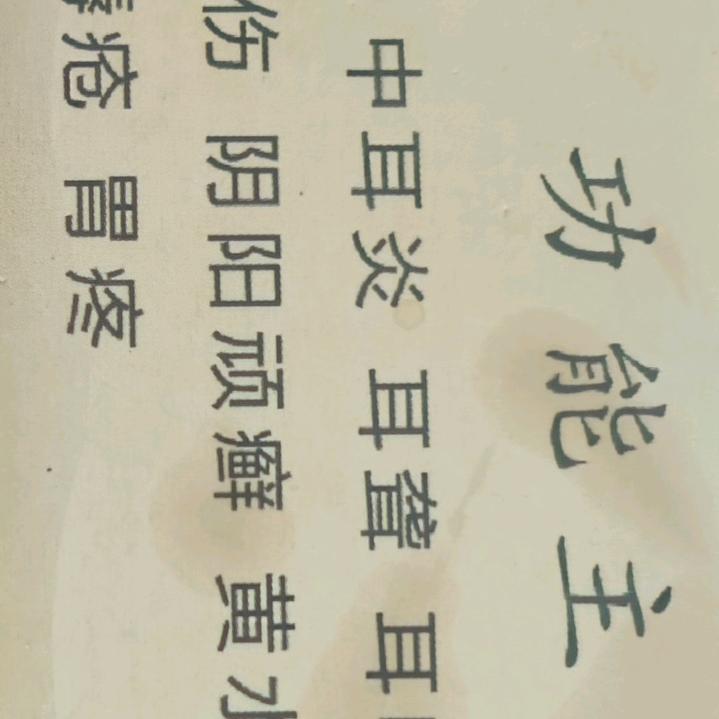 功能主
中耳炎 耳聋 耳
伤 阴阳顽癣 黄水
疮 胃疼